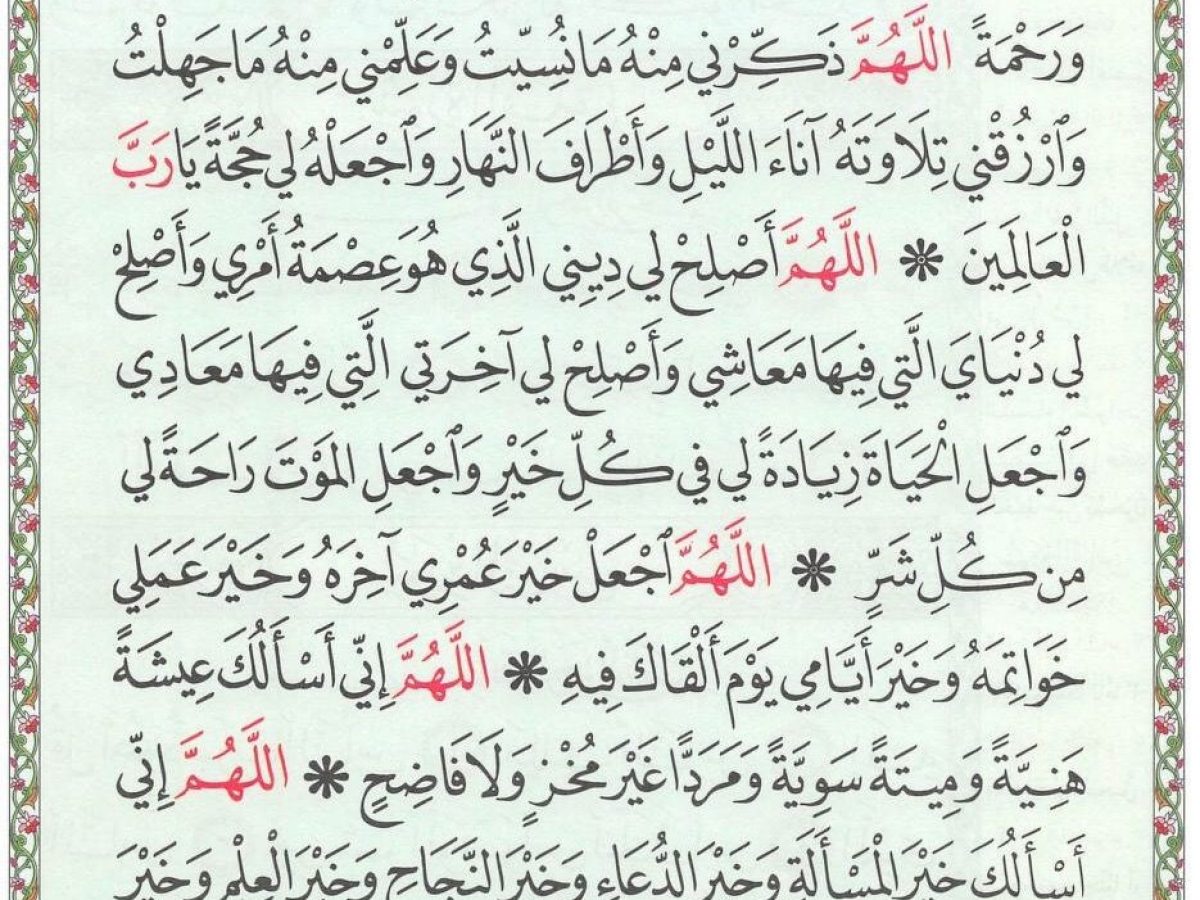 وَرَحْمَةً اللَّهُمَّ ذَكِّرْنِي مِنْهُ مَا نُسِّيتُ وَعَلِّمْنِي مِنْهُ مَا جَهِلْتُ
وَٱرْزُقْنِي تِلَاوَتَهُ آنَاءَ اللَّيْلِ وَأَطْرَافَ النَّهَارِ وَٱجْعَلْهُ لِي حُجَّةً يَا رَبَّ
الْعَالَمِينَ ❋ اللَّهُمَّ أَصْلِحْ لِي دِينِي الَّذِي هُوَ عِصْمَةُ أَمْرِي وَأَصْلِحْ
لِي دُنْيَايَ الَّتِي فِيهَا مَعَاشِي وَأَصْلِحْ لِي آخِرَتِي الَّتِي فِيهَا مَعَادِي
وَٱجْعَلِ الْحَيَاةَ زِيَادَةً لِي فِي كُلِّ خَيْرٍ وَٱجْعَلِ المَوْتَ رَاحَةً لِي
مِن كُلِّ شَرٍّ ❋ اللَّهُمَّ ٱجْعَلْ خَيْرَ عُمْرِي آخِرَهُ وَخَيْرَ عَمَلِي
خَوَاتِمَهُ وَخَيْرَ أَيَّامِي يَوْمَ أَلْقَاكَ فِيهِ ❋ اللَّهُمَّ إِنِّي أَسْأَلُكَ عِيشَةً
هَنِيَّةً وَمِيتَةً سَوِيَّةً وَمَرَدًّا غَيْرَ مُخْزٍ وَلَا فَاضِحٍ ❋ اللَّهُمَّ إِنِّي
أَسْأَلُكَ خَيْرَ الْمَسْأَلَةِ وَخَيْرَ الدُّعَاءِ وَخَيْرَ النَّجَاحِ وَخَيْرَ الْعِلْمِ وَخَيْرَ